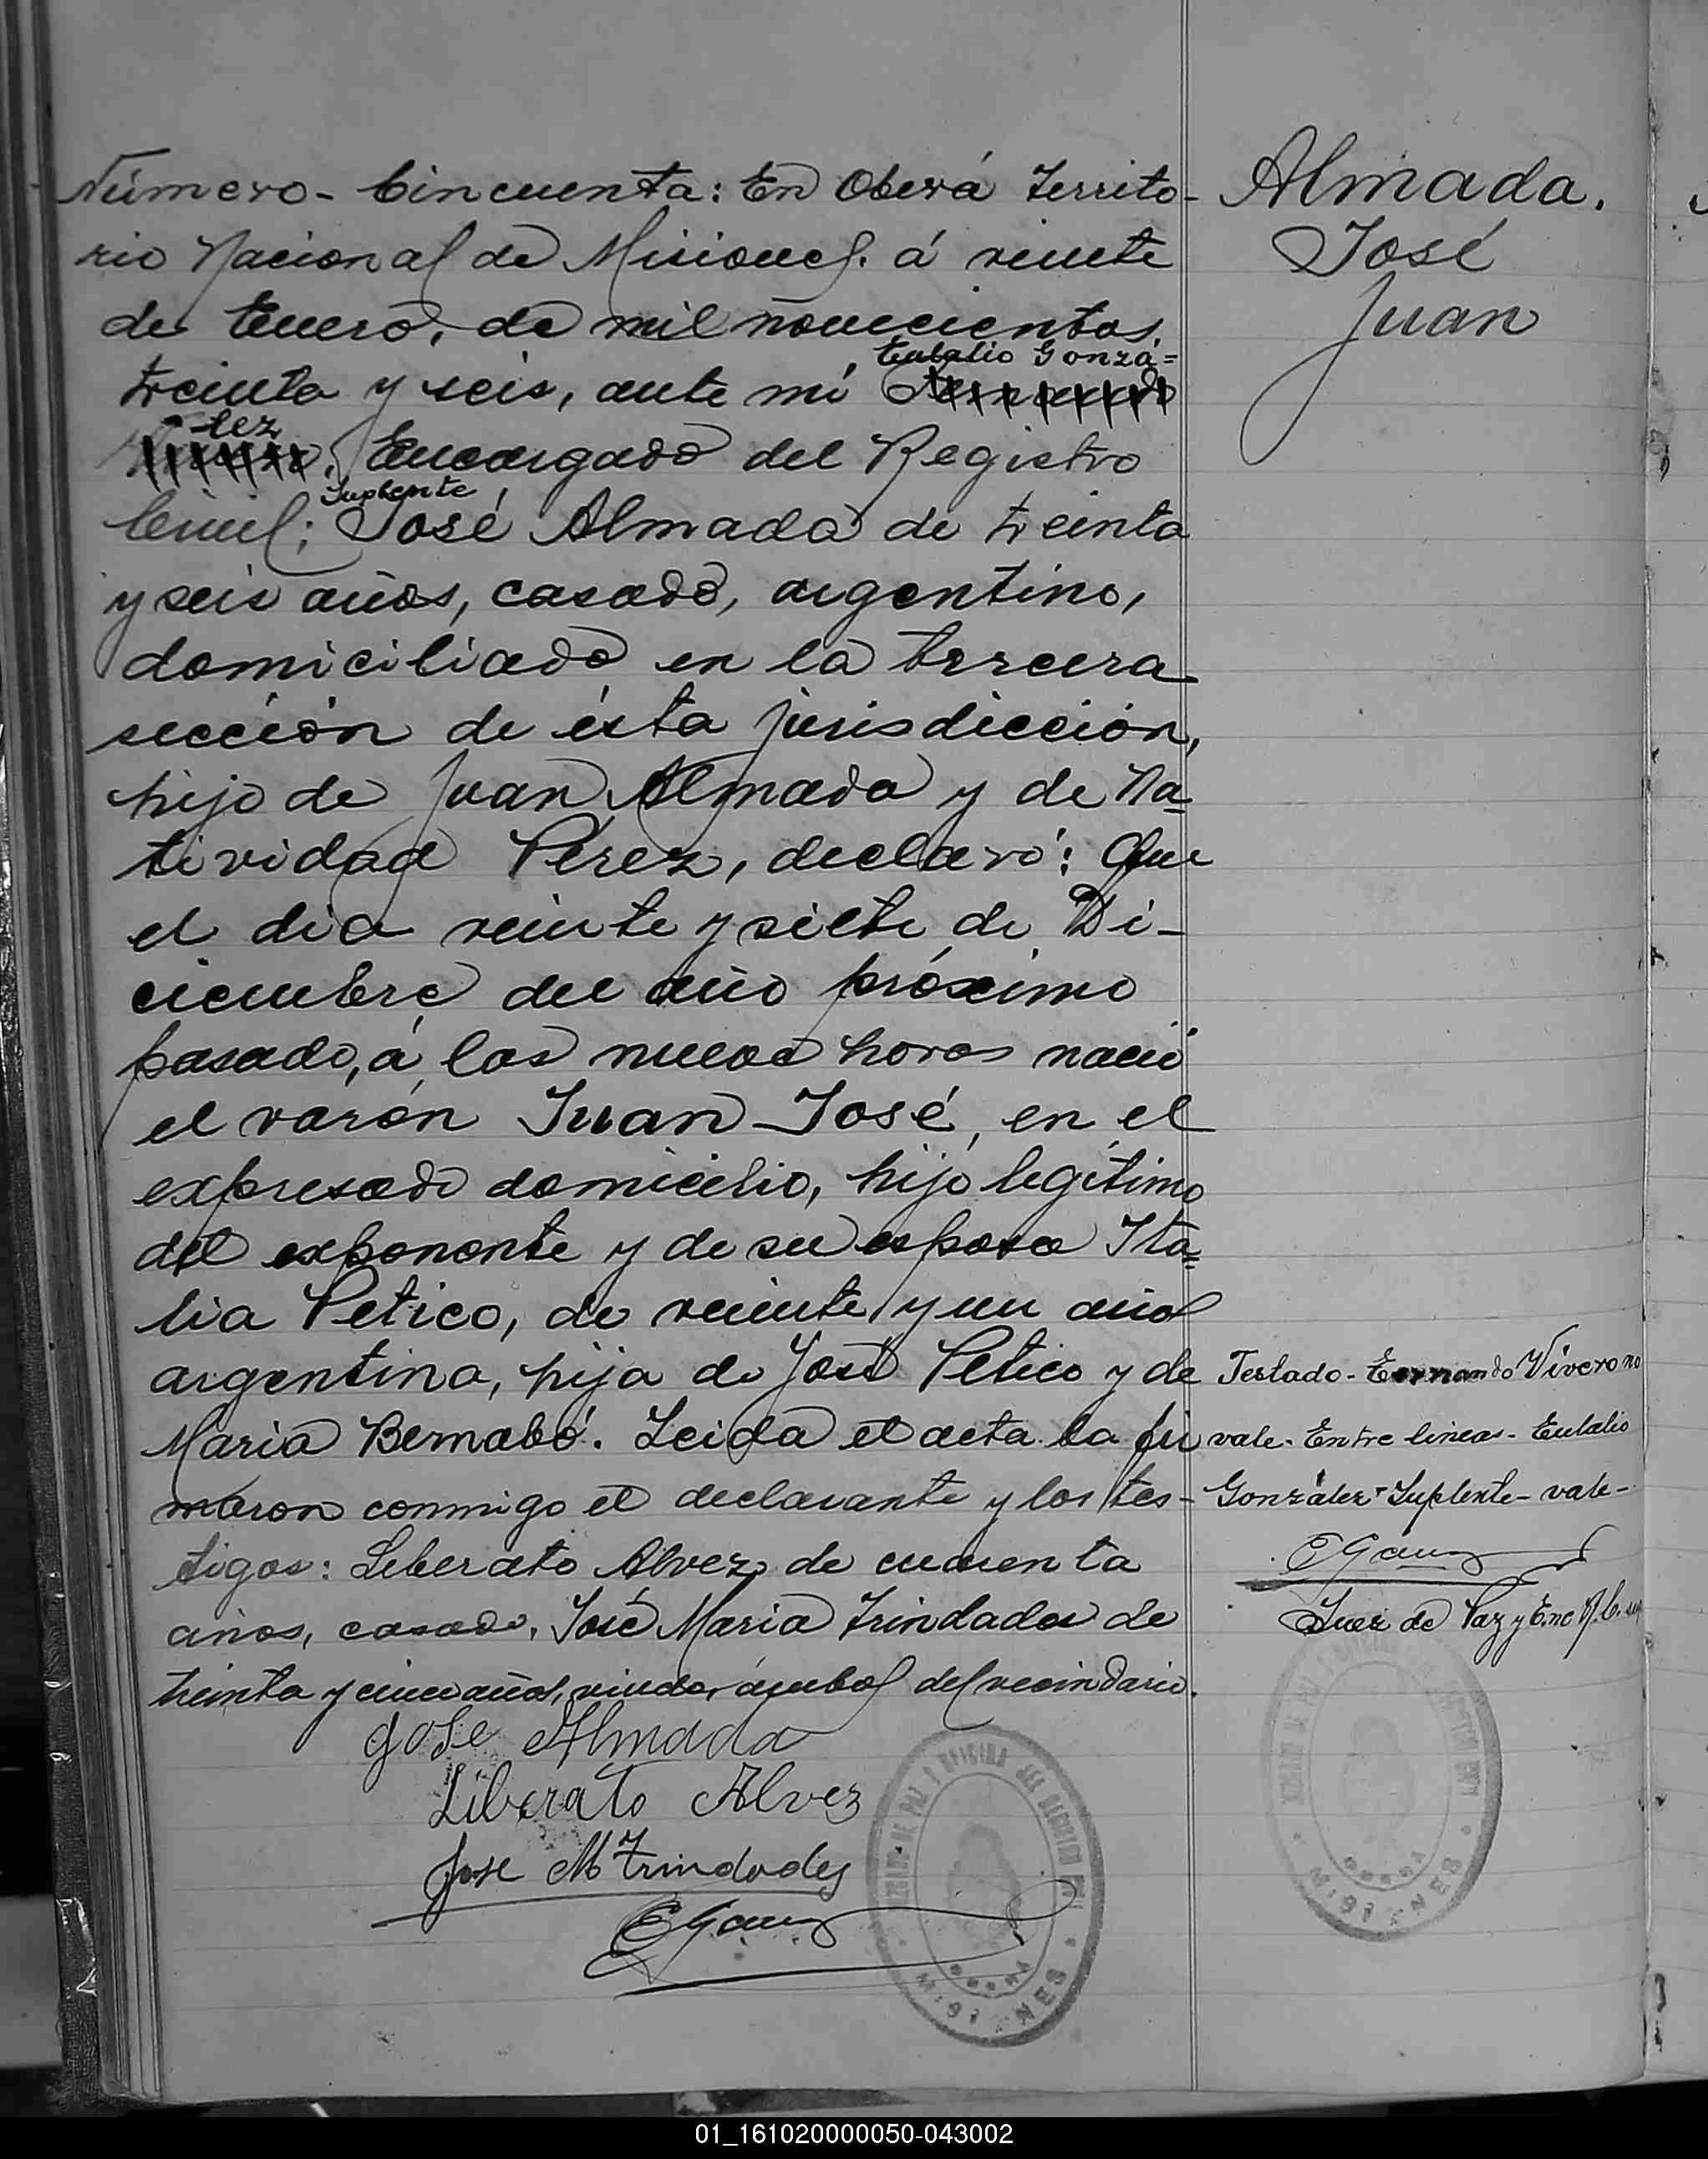 Número - Cincuenta: En Oberá Territo-
rio Nacional de Misiones. á veinte
de Enero, de mil novecientos
Eulalio Gonzá=
treinta y seis, ante mi Fernando
lez
Vivero, Encargado del Registro
Suplente
Civil; José Almada de treinta
y seis años, casado, argentino,
domiciliado en la tercera
sección de ésta jurisdicción,
hijo de Juan Almada y de Na=
tividad Pérez, declaró: Que
el dia veinte y siete de Di-
ciembre del año próximo
pasado, á las nueve horas nació
el varón Juan José, en el
expresado domicilio, hijo legítimo
del exponente y de su esposa Ita=
lia Petico, de veinte y un años
argentina, hija de José Petico y de
Maria Bernabó. Leida el acta la fir
maron conmigo el declarante y los tes-
tigos: Liberato Alvez de cuarenta
años, casado, José Maria Trindades de
treinta y cinco años, viudo, ámbos del vecindario.
Jose Almada
Liberato Alvez
Jose M Trindades
EGonz
Almada.
José
Juan
Testado - Fernando Vivero no
vale. Entre lineas - Eulalio
González - Suplente - vale -
EGonz
Juez de Paz y Enc R.C. sup
JUZGADO DE PAZ Y OFICINA DEL REGISTRO CIVIL
OBERÁ
MISIONES
JUZGADO DE PAZ Y OFICINA DEL REGISTRO CIVIL
OBERÁ
MISIONES
01_161020000050-043002